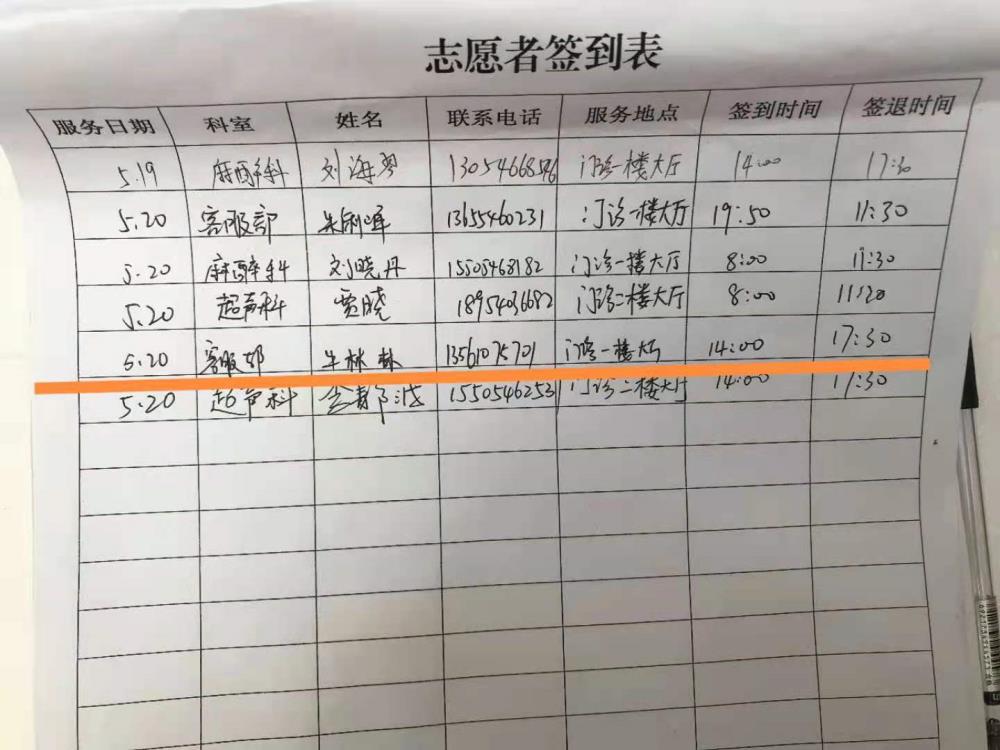 志愿者签到表
服务日期 科室 姓名 联系电话 服务地点 签到时间 签退时间
5.19 麻醉科 刘海 门诊一楼大厅 14:00 17:30
5.20 客服部 13655460231 门诊一楼大厅 19:50 11:30
5.20 麻醉科 刘晓丹 15505468182 门诊一楼大厅 8:00 11:30
5.20 超声科 贾晓 18954036682 门诊二楼大厅 8:00 11:20
5.20 客服部 牛林林 13561075701 门诊一楼大厅 14:00 17:30
5.20 超声科 15505462531 门诊二楼大厅 14:00 17:30